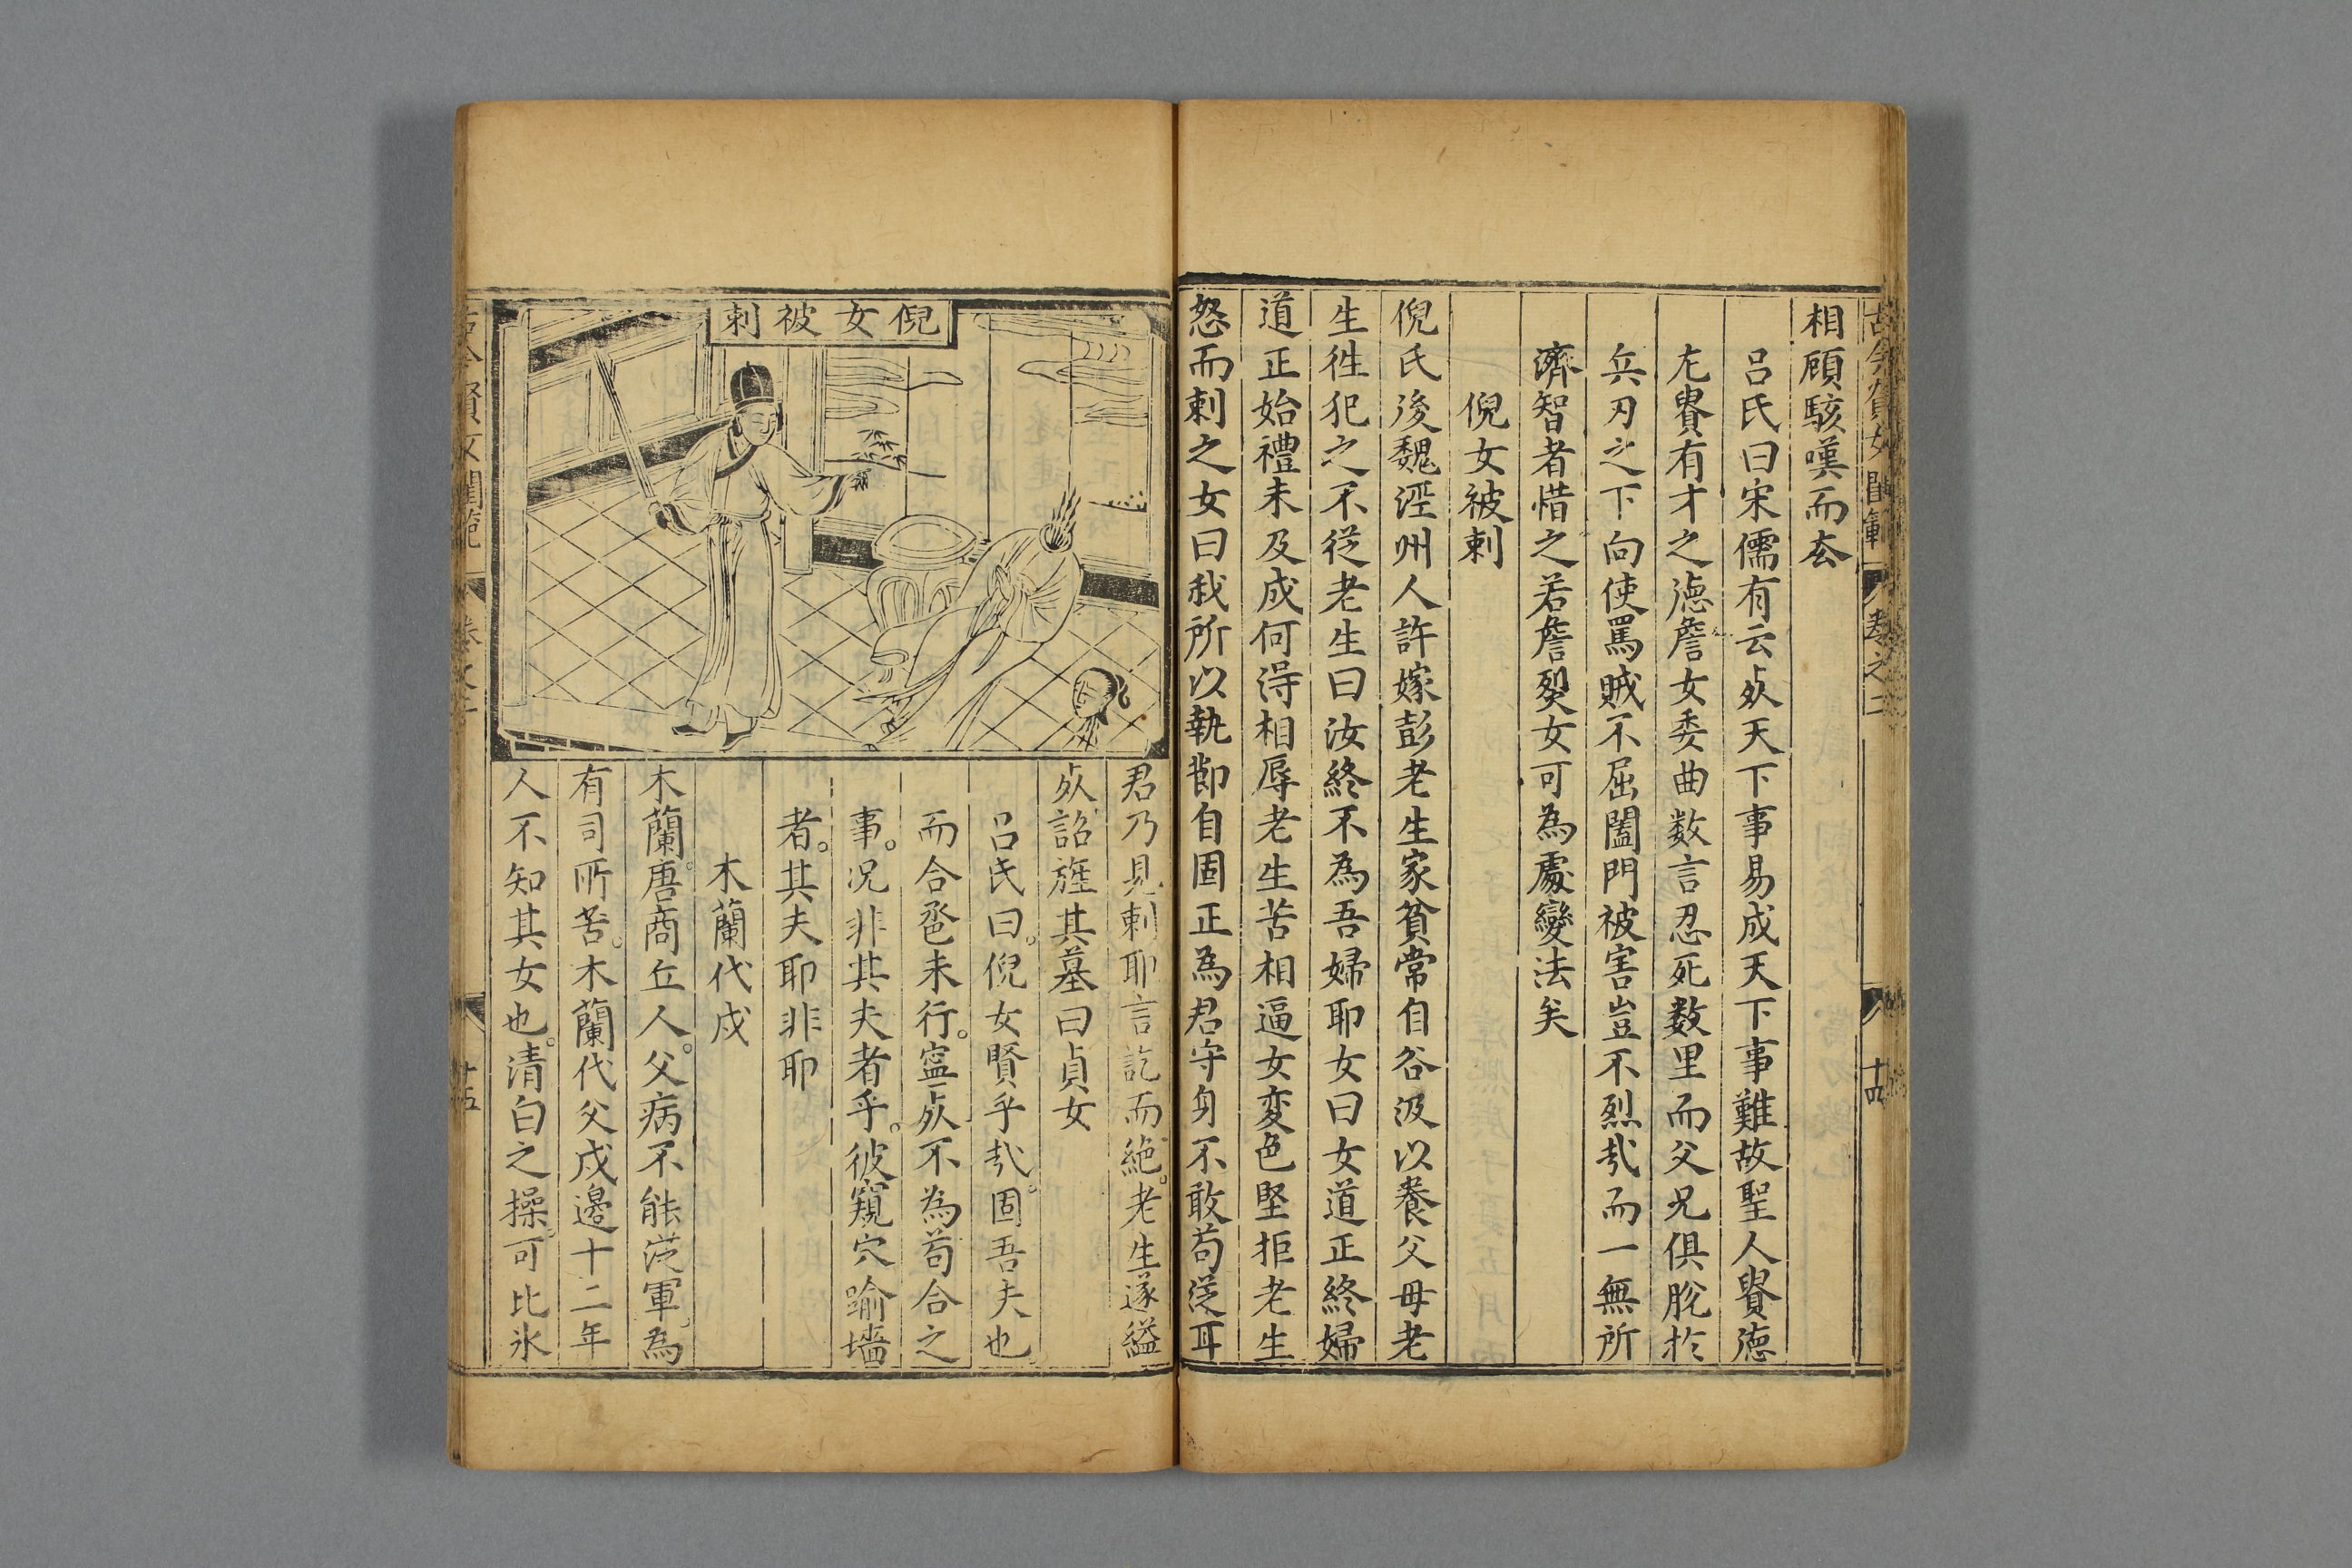 古今賢女閨範 卷之二 十四
相顧駭嘆而去
呂氏曰宋儒有云死天下事易成天下事難故聖人貴德
尤貴有才之德詹女委曲数言忍死数里而父兄俱脫於
兵刃之下向使罵賊不屈闔門被害豈不烈哉而一無所
濟智者惜之若詹烈女可為處變法矣
倪女被刺
倪氏後魏涇州人許嫁彭老生家貧常自谷汲以養父母老
生徃犯之不從老生曰汝終不為吾婦耶女曰女道正終婦
道正始禮未及成何得相辱老生苦相逼女変色堅拒老生
怒而刺之女曰我所以執節自固正為君守身不敢苟從耳
倪女被刺
君乃見刺耶言訖而絕。老生遂縊
死詔旌其墓曰貞女
呂氏曰。倪女賢乎哉。固吾夫也
而合巹未行。寧死不為苟合之
事。况非其夫者乎。彼窺穴踰墻
者。其夫耶非耶
木蘭代戍
木蘭。唐商丘人。父病不能從軍。為
有司所苦。木蘭代父戍邊十二年
人不知其女也。清白之操。可比氷
古今賢女閨範 卷之二 十五